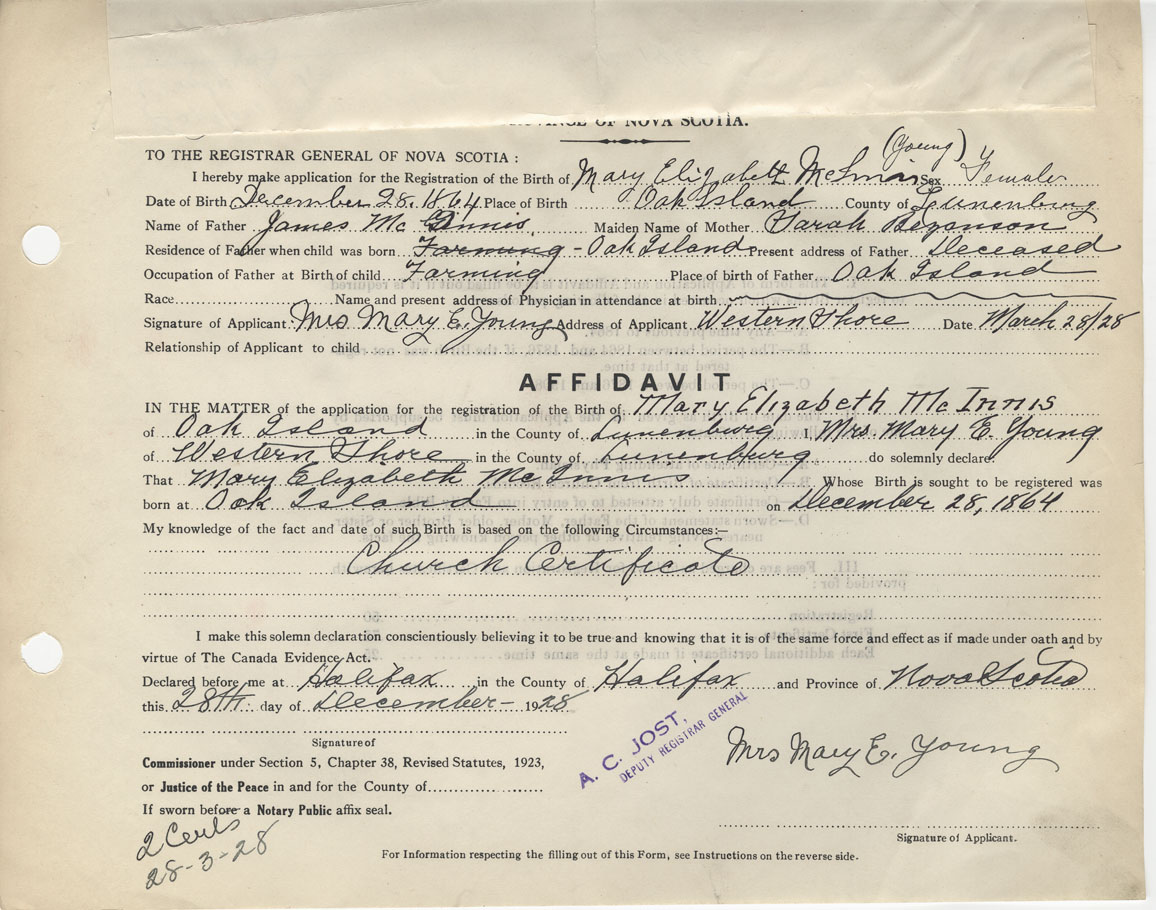 OF NOVA SCOTIA.
TO THE REGISTRAR GENERAL OF NOVA SCOTIA :
(Young)
I hereby make application for the Registration of the Birth of Mary Elizabeth McInnis Sex Female
Date of Birth December 28. 1864. Place of Birth Oak Island County of Lunenburg
Name of Father James Mc Ginnis. Maiden Name of Mother Sarah Bezanson
Residence of Father when child was born Farming - Oak Island Present address of Father Deceased
Occupation of Father at Birth of child Farming Place of birth of Father Oak Island
Race Name and present address of Physician in attendance at birth
Signature of Applicant. Mrs Mary E. Young Address of Applicant Western Shore Date March 28/28
Relationship of Applicant to child
AFFIDAVIT
IN THE MATTER of the application for the registration of the Birth of Mary Elizabeth McInnis
of Oak Island in the County of Lunenburg I, Mrs. Mary E. Young
of Western Shore in the County of Lunenburg do solemnly declare:
That Mary Elizabeth McInnis Whose Birth is sought to be registered was
born at Oak Island on December 28, 1864
My knowledge of the fact and date of such Birth is based on the following Circumstances:—
Church Certificate
I make this solemn declaration conscientiously believing it to be true and knowing that it is of the same force and effect as if made under oath and by
virtue of The Canada Evidence Act.
Declared before me at Halifax in the County of Halifax and Province of Nova Scotia
this 28th day of December - 1928
A. C. JOST,
DEPUTY REGISTRAR GENERAL
Mrs Mary E. Young
Signature of
Commissioner under Section 5, Chapter 38, Revised Statutes, 1923,
or Justice of the Peace in and for the County of
If sworn before a Notary Public affix seal.
2 Certs
28-3-28
Signature of Applicant.
For Information respecting the filling out of this Form, see Instructions on the reverse side.